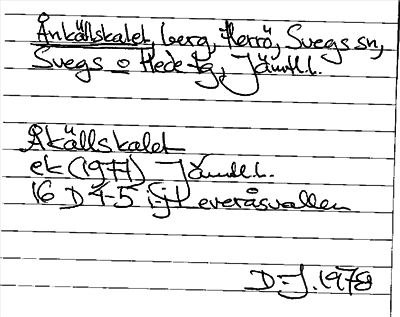 Ånkällskalet, berg, Herrö, Svegs sn,
Svegs o Hede tg, Jämtl.l.
Åkällskalet
ek (1977) Jämtl.l.
16 D 4-5 i-j Leveråsvallen
D-J. 1978